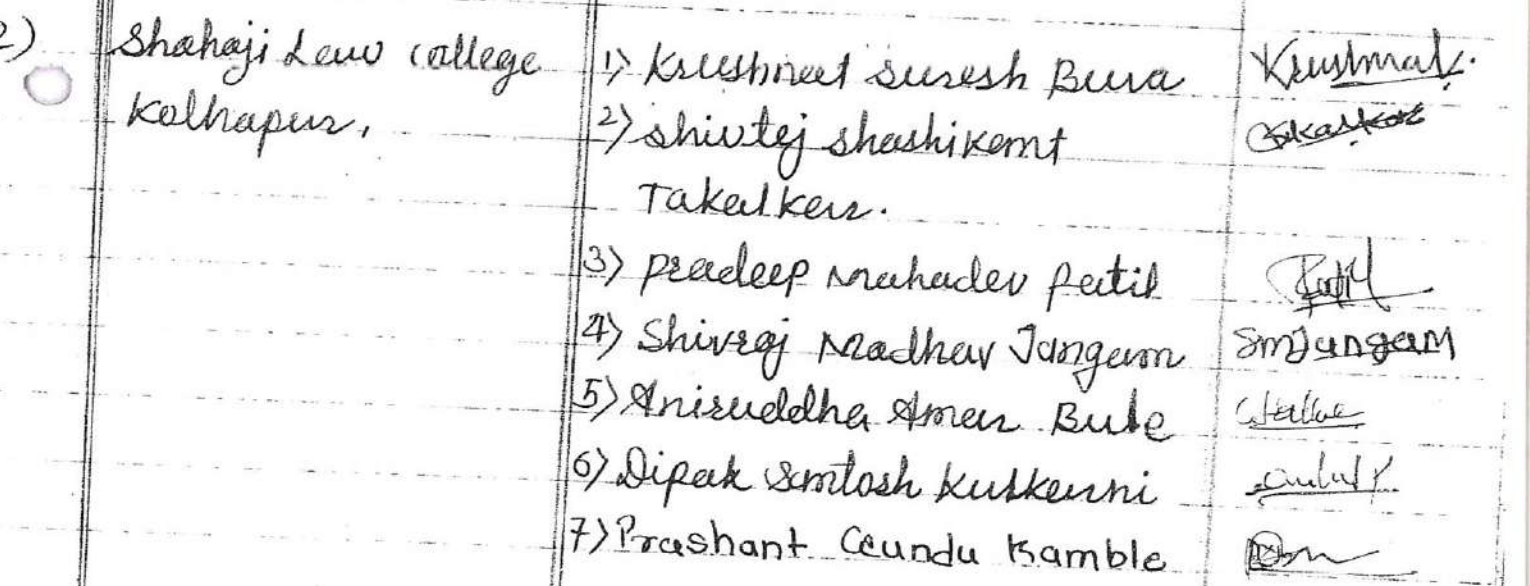 2) Shahaji Law College
Kolhapur,
1) Krushnat Suresh Bura Krushnat.
2) Shivtej Shashikant
Takalkar.
3) Pradeep Mahadev Patil Patil
4) Shivraj Madhav Jangam SMJangam
5) Aniruddha Amar Bute
6) Dipak Santosh Kulkarni
7) Prashant Gundu Kamble